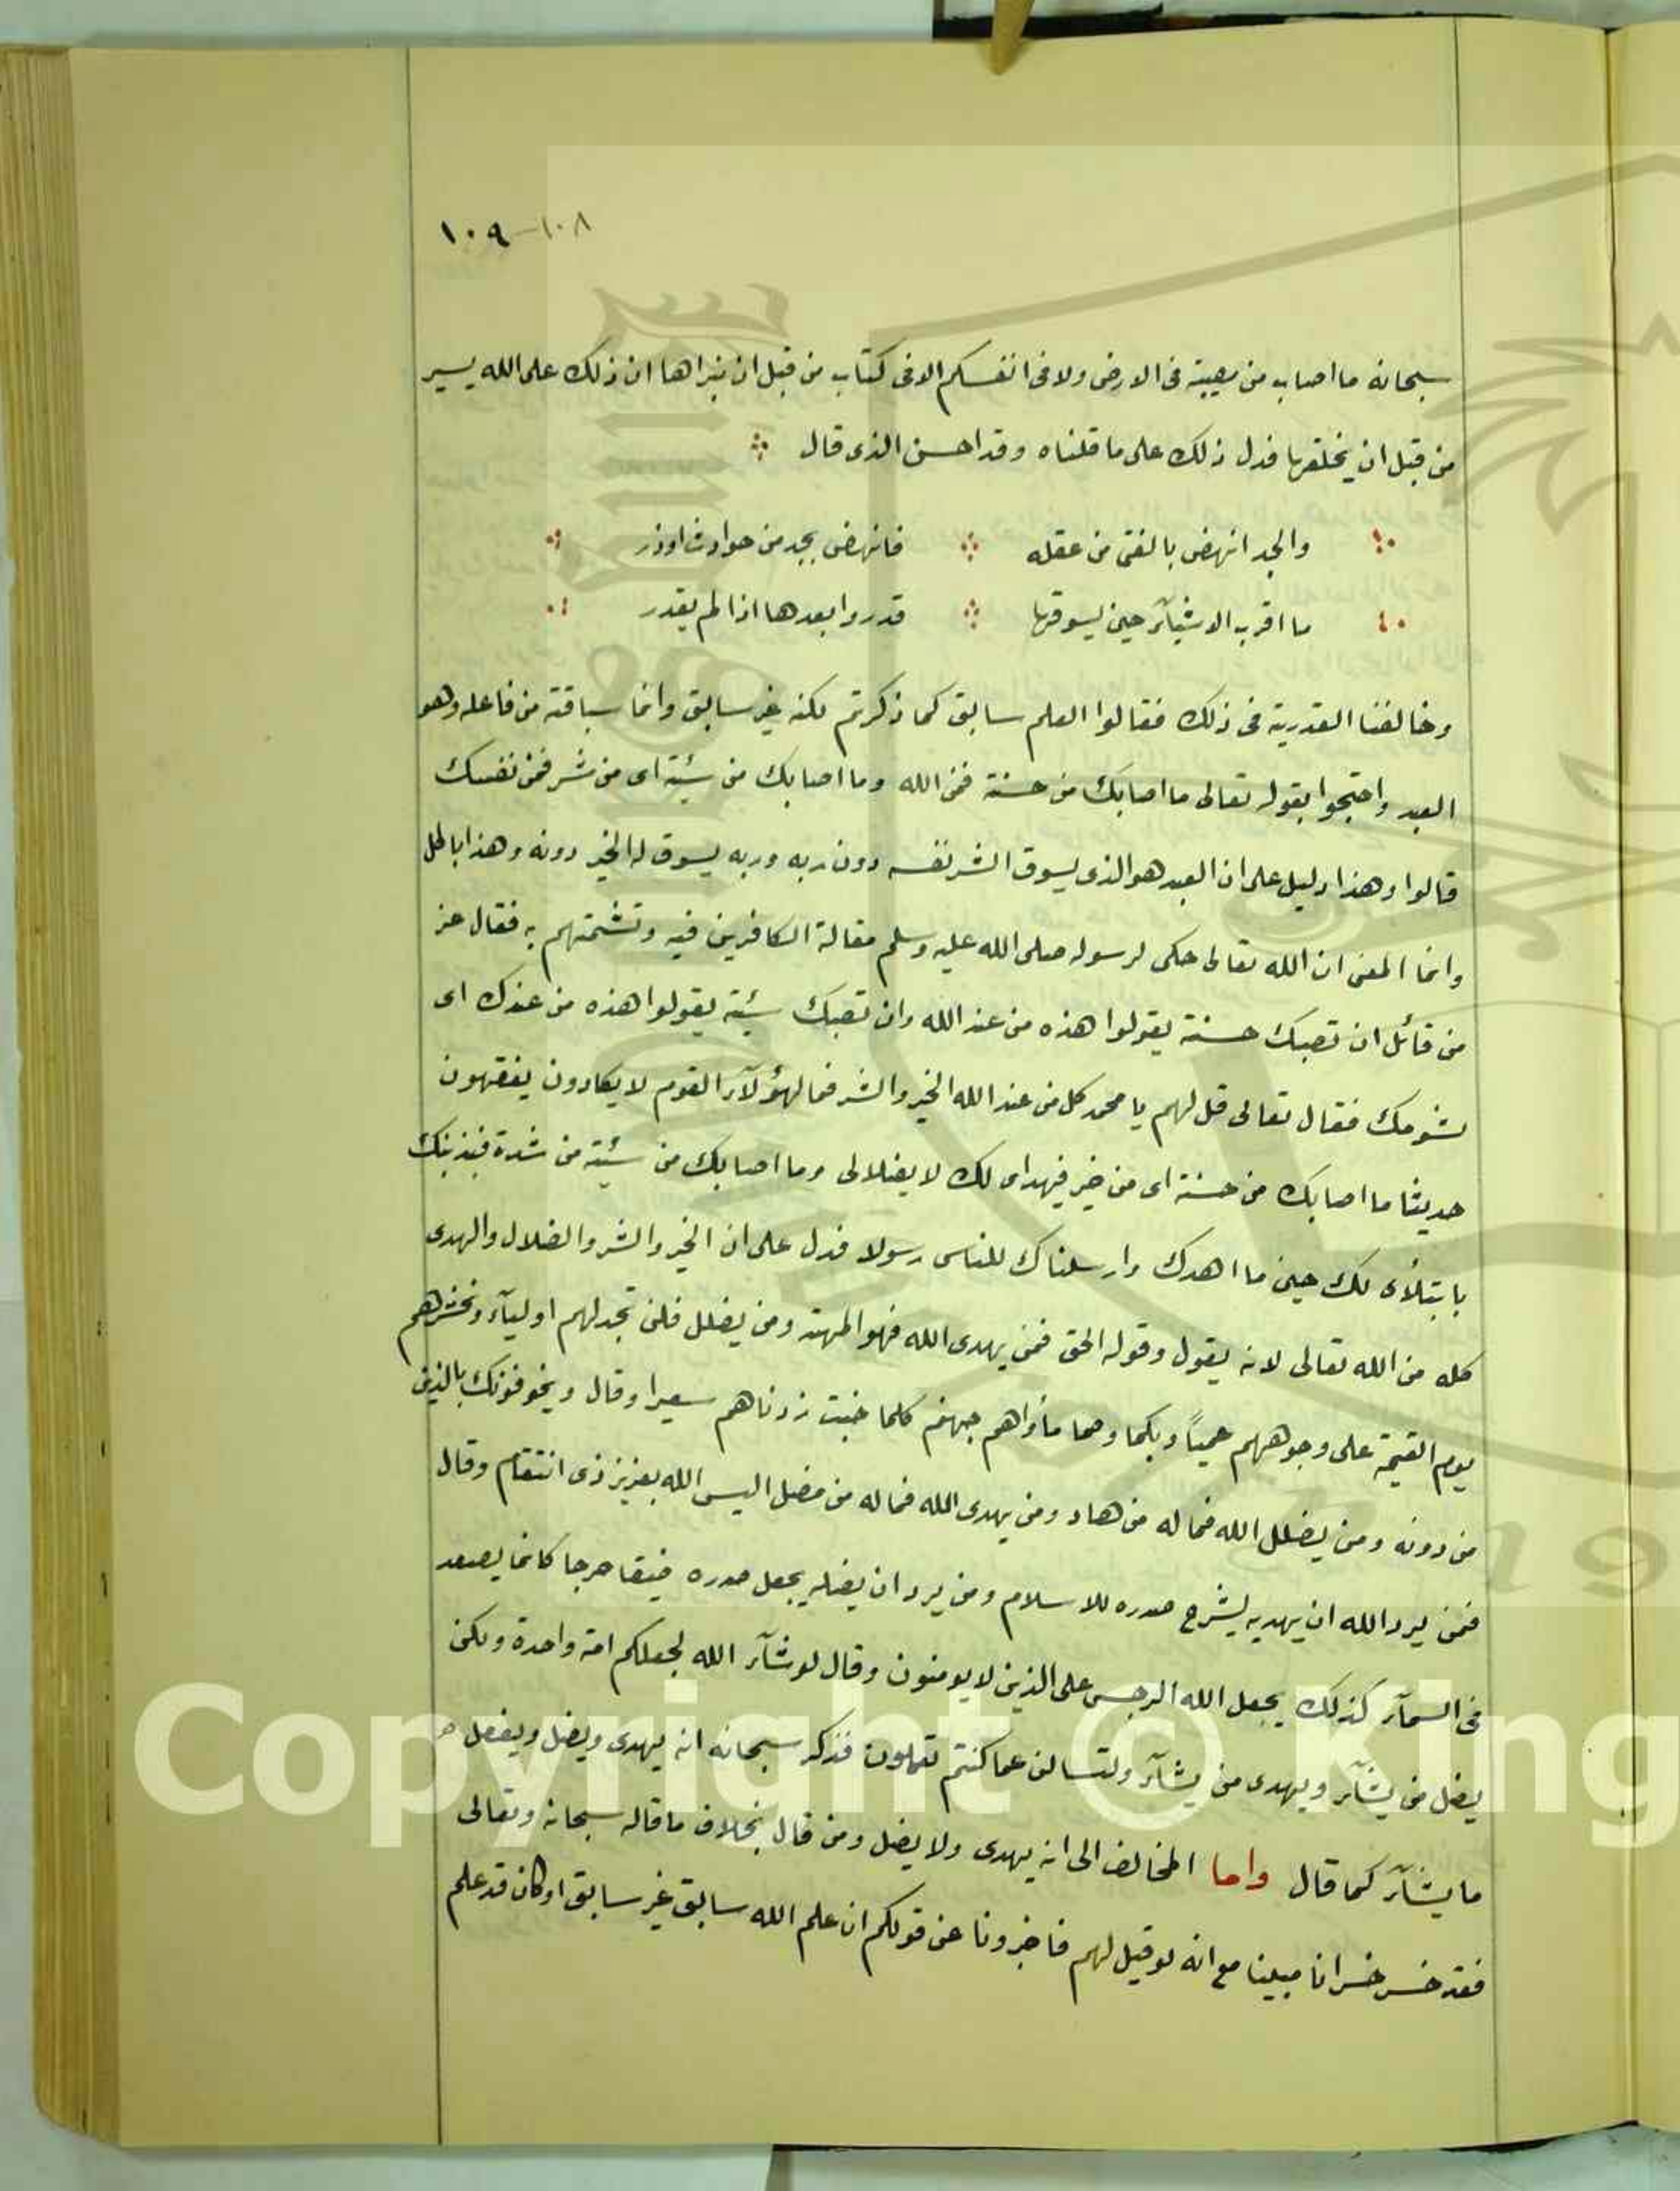 ١٠٨ - ١٠٩
سبحانه ما اصاب من مصيبة فى الارض ولا فى انفسكم الا فى كتاب من قبل ان نبراها ان ذلك على الله يسير
من قبل ان يخلقها فدل ذلك على ما قلناه وقد احسن الذى قال
والجد انهض بالفتى من عقله فانهض بجد من حوادث اوذر
ما اقرب الاشيآء حين يسوقها قدر وابعدها اذا لم يقدر
وخالفنا القدرية فى ذلك فقالوا العلم سابق كما ذكرتم لكنه غير سابق وانما سباقته من فاعله وهو
العبد واحتجوا بقوله تعالى ما اصابك من حسنة فمن الله وما اصابك من سئية اى من شر فمن نفسك
قالوا وهذا دليل على ان العبد هو الذى يسوق الشر نفسه دون ربه وربه يسوق له الخير دونه وهذا باطل
وانما المعنى ان الله تعالى حكى لرسوله صلى الله عليه وسلم مقالة الكافرين فيه وتشمتهم به فقال عز
من قائل ان تصبك حسنة يقولوا هذه من عند الله وان تصبك سئية يقولوا هذه من عندك اى
بشومك فقال تعالى قل لهم يا محمد كل من عند الله الخير والشر فما لهؤلآء القوم لا يكادون يفقهون
حديثا ما اصابك من حسنة اى من خير فبهداى لك لا بفعلالى وما اصابك من سئية من شدة فبذنبك
بابتلآئى لك حين ما اهدك وارسلناك للناس رسولا فدل على ان الخير والشر والضلال والهدى
كله من الله تعالى لانه يقول وقوله الحق فمن يهدى الله فهو المهتد ومن يضلل فلن تجد لهم اوليآء ونحشرهم
يوم القيمة على وجوههم عمياً وبكما وصما مأواهم جهنم كلما خبت زدناهم سعيرا وقال ويخوفونك بالذين
من دونه ومن يضلل الله فما له من هاد ومن يهدى الله فما له من مضل اليس الله بعزيز ذى انتقام وقال
فمن يرد الله ان يهديه يشرح صدره للاسلام ومن يرد ان يضله يجعل صدره ضيقا حرجا كانما يصعد
فى السمآء كذلك يجعل الله الرجس على الذين لا يومنون وقال لو شآء الله لجعلكم امة واحدة ولكن
يضل من يشآء ويهدى من يشآء ولتسالن عما كنتم تعملون فذكر سبحانه انه يهدى ويضل ويفعل
ما يشآء كما قال واما المخالف الى انه يهدى ولا يضل ومن قال بخلاف ما قاله سبحانه وتعالى
فقد خسر خسرانا مبينا مع انه لو قيل لهم فاخبرونا عن قولكم ان علم الله سابق غير سابق او كان قد علم
Copyright © King